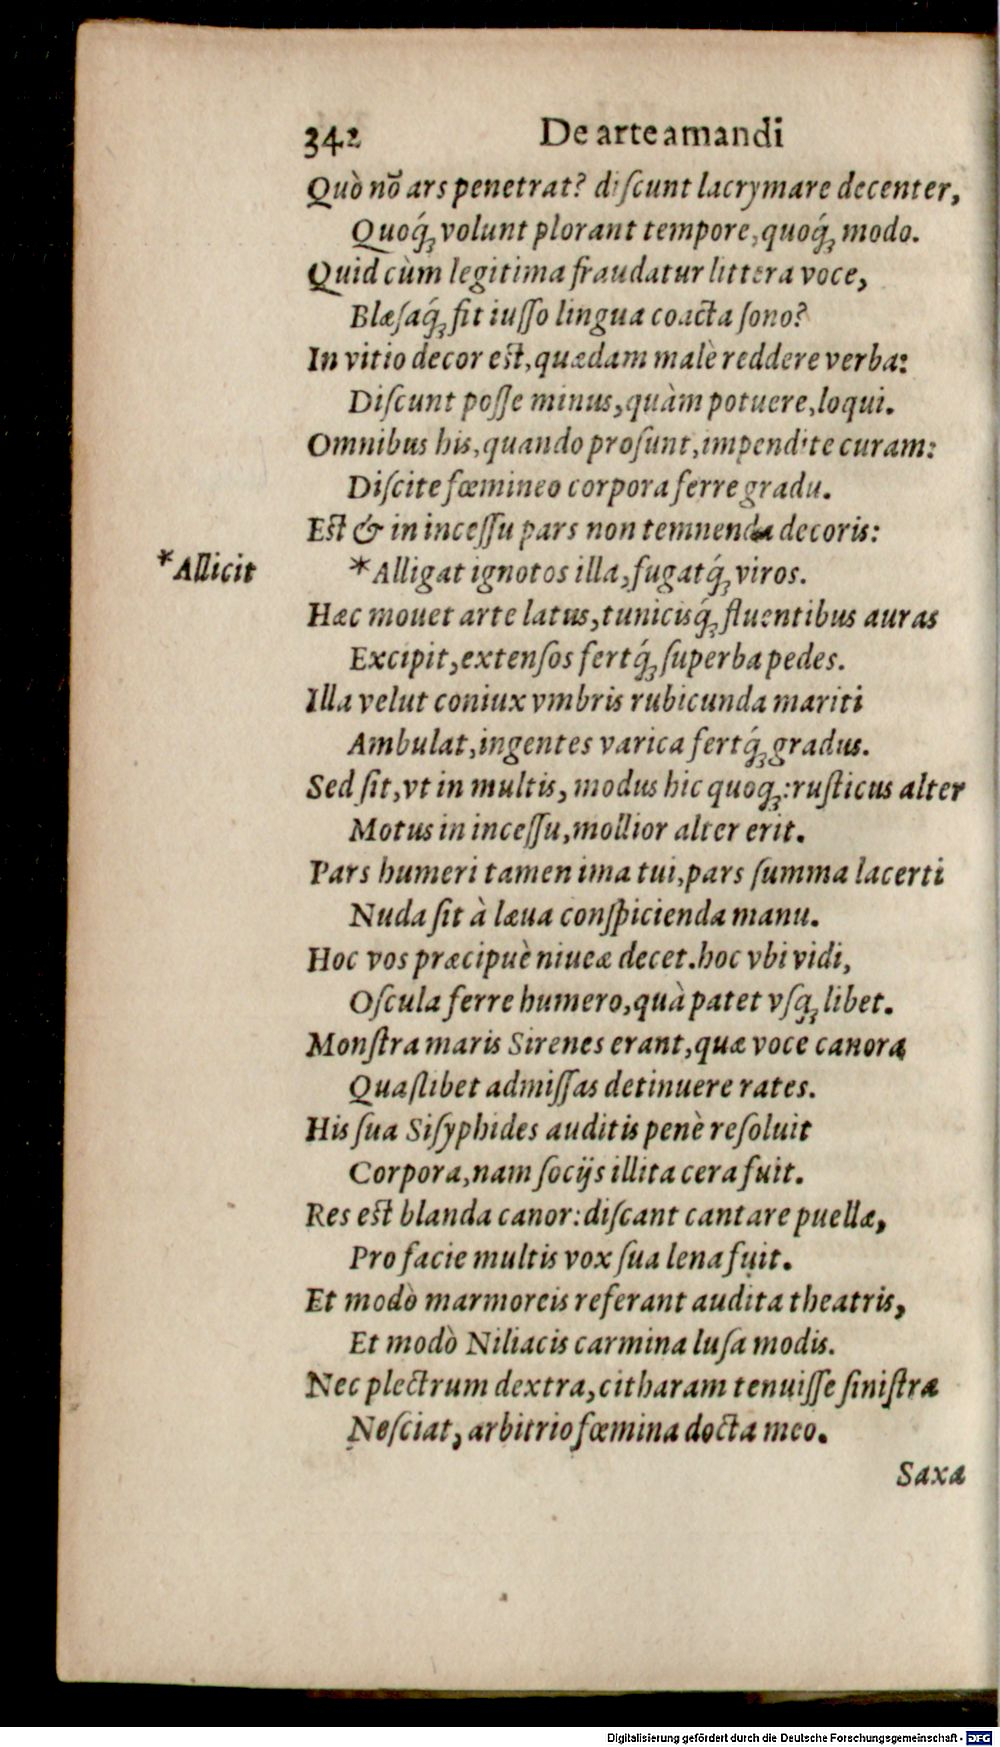 342 De arte amandi
Quò nõ ars penetrat? discunt lacrymare decenter,
Quoq́; volunt plorant tempore, quoq́; modo.
Quid cùm legitima fraudatur littera voce,
Blæsaq́; fit iusso lingua coacta sono?
In vitio decor est, quædam malè reddere verba:
Discunt posse minus, quàm potuere, loqui.
Omnibus his, quando prosunt, impendite curam:
Discite fœmineo corpora ferre gradu.
Est & in incessu pars non temnenda decoris:
*Allicit *Alligat ignotos illa, fugatq́; viros.
Hæc mouet arte latus, tunicisq́; fluentibus auras
Excipit, extensos fertq́; superba pedes.
Illa velut coniux vmbris rubicunda mariti
Ambulat, ingentes varica fertq́; gradus.
Sed sit, vt in multis, modus hic quoq;: rusticus alter
Motus in incessu, mollior alter erit.
Pars humeri tamen ima tui, pars summa lacerti
Nuda sit à læua conspicienda manu.
Hoc vos præcipuè niueæ decet. hoc vbi vidi,
Oscula ferre humero, quà patet vsq; libet.
Monstra maris Sirenes erant, quæ voce canora
Quaslibet admissas detinuere rates.
His sua Sisyphides auditis penè resoluit
Corpora, nam socijs illita cera fuit.
Res est blanda canor: discant cantare puellæ,
Pro facie multis vox sua lena fuit.
Et modò marmoreis referant audita theatris,
Et modò Niliacis carmina lusa modis.
Nec plectrum dextra, citharam tenuisse sinistra
Nesciat, arbitrio fœmina docta meo.
Saxa
Digitalisierung gefördert durch die Deutsche Forschungsgemeinschaft - DFG